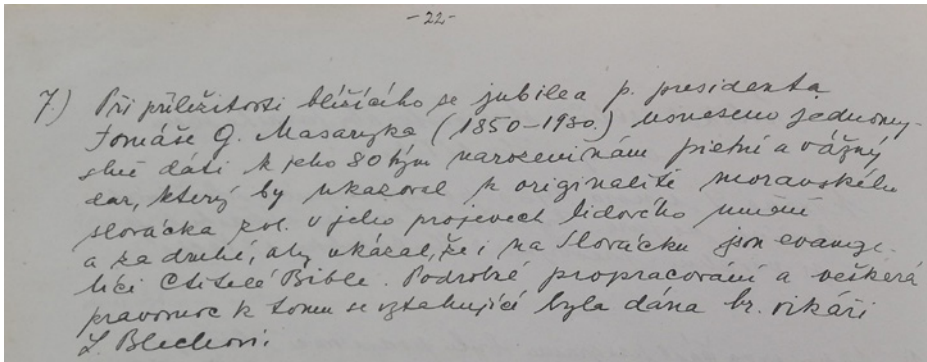 -22-
7.) Při příležitosti blížícího se jubilea p. presidenta
Tomáše G. Masaryka (1850-1930.) usneseno jednomy-
slně dáti k jeho 80tým narozeninám pietní a vážný
dar, který by ukazoval k originalitě moravského
slovácka zvl. v jeho projevech lidového umění
a za druhé, aby ukázal, že i na Slovácku jsou evange-
líci ctitelé Bible. Podrobné propracování a veškerá
pravomoc k tomu se vztahující byla dána br. vikáři
L. Blechovi.